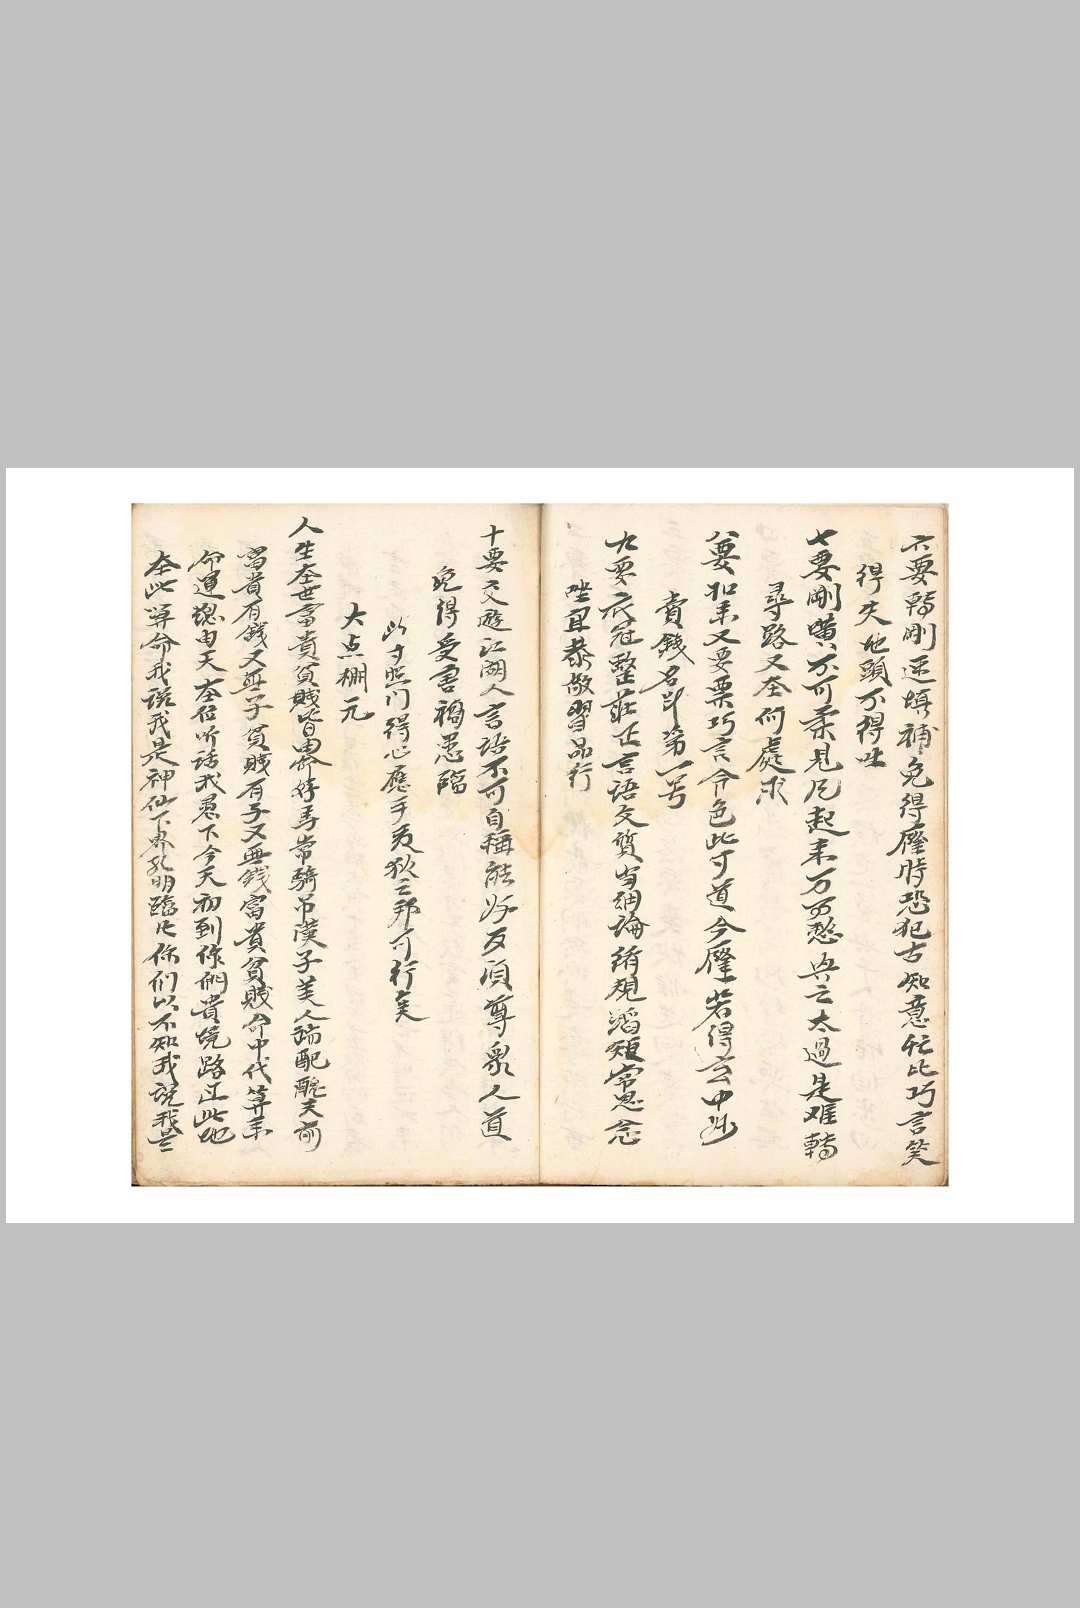 六要轉剛逆填補免得壓時恐犯古知意忙比巧言笑
得失地頭不得吐
七要剛嘴不可柔見凡起来万不愁与之太過是难轉
尋路又在何處求
八要扣来又要票巧言令色此寸道今壓若得玄中妙
賣錢名斗第一号
九要衣冠整莊正言語文質当細論循規蹈矩常思念
坐宜恭敬習品行
十要交遊江湖人言語不可自稱能必須尊衆人道
免得受害禍患臨
此寸照门得心應手夷狄之邦可行矣
大点棚元
人生在世富貴貧賤皆由命好馬常騎呆漢子美人端配醜夫前
富貴有錢又無子貧賤有子又無錢富貴貧賤命中代算来
命運總由天在位听話我愚下今天初到你們貴境路过此地
在此算命我説我是神仙下界孔明臨凡你们以不知我説我是